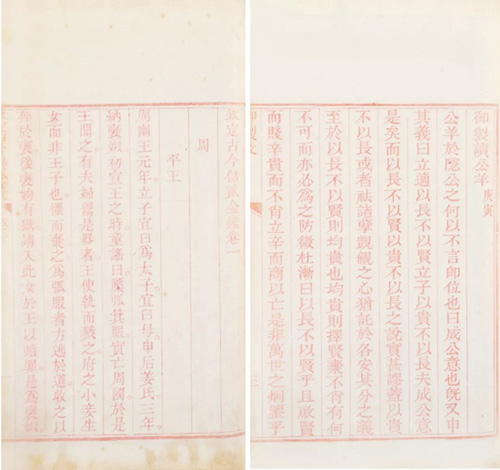 御製讀公羊 庚寅
公羊於隱公之何以不言即位也曰成公意也既又申
其義曰立適以長不以賢立子以貴不以長夫成公意
是矣而以長不以賢以貴不以長之說實甚謬蓋以貴
不以長或者祛諸孽覬覦之心猶託於各安其分之義
至於以長不以賢則均貴也均貴則擇賢棄不肖有何
不可而亦必為之防微杜漸曰以長不以賢乎且啟賢
而賤辛貴而不肖立辛而商以亡是非萬世之炯鑒乎
御製文
欽定古今儲貳金鑑卷一
周
平王
周幽王元年立子宜臼為太子宜臼母申后姜氏三年
納褒姒初宣王之時童謠曰檿弧箕服實亡周國於是
王聞之有夫婦鬻是器者王使執而戮之府之小妾生
女而非王子也懼而棄之為弧服者方逃於道收之以
奔於褒後褒姁有獄請入此女於王以贖罪是為褒姒